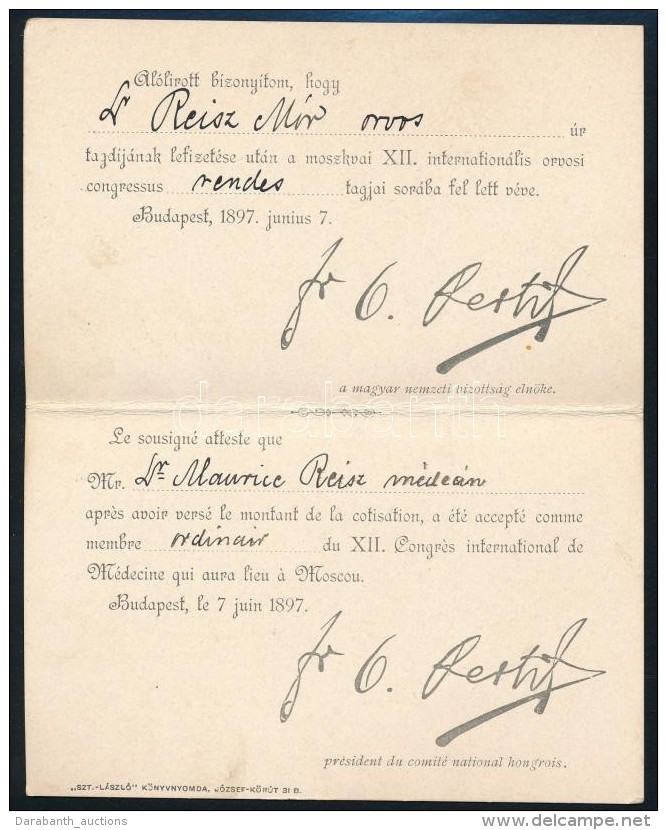 Alólirott bizonyítom, hogy
Dr Reisz Mór orvos úr
tagdíjának lefizetése után a moszkvai XII. internationális orvosi
congressus rendes tagjai sorába fel lett véve.
Budapest, 1897. junius 7.
a magyar nemzeti bizottság elnöke.
darabanth
Le sousigné atteste que
Mr. Dr Maurice Reisz médecin
après avoir versé le montant de la cotisation, a été accepté comme
membre ordinair du XII. Congrès international de
Médecine qui aura lieu à Moscou.
Budapest, le 7 juin 1897.
président du comité national hongrois.
„SZT.-LÁSZLÓ" KÖNYVNYOMDA. JÓZSEF-KÖRÚT 31 B.
Darabanth_auctions
delcampe.net